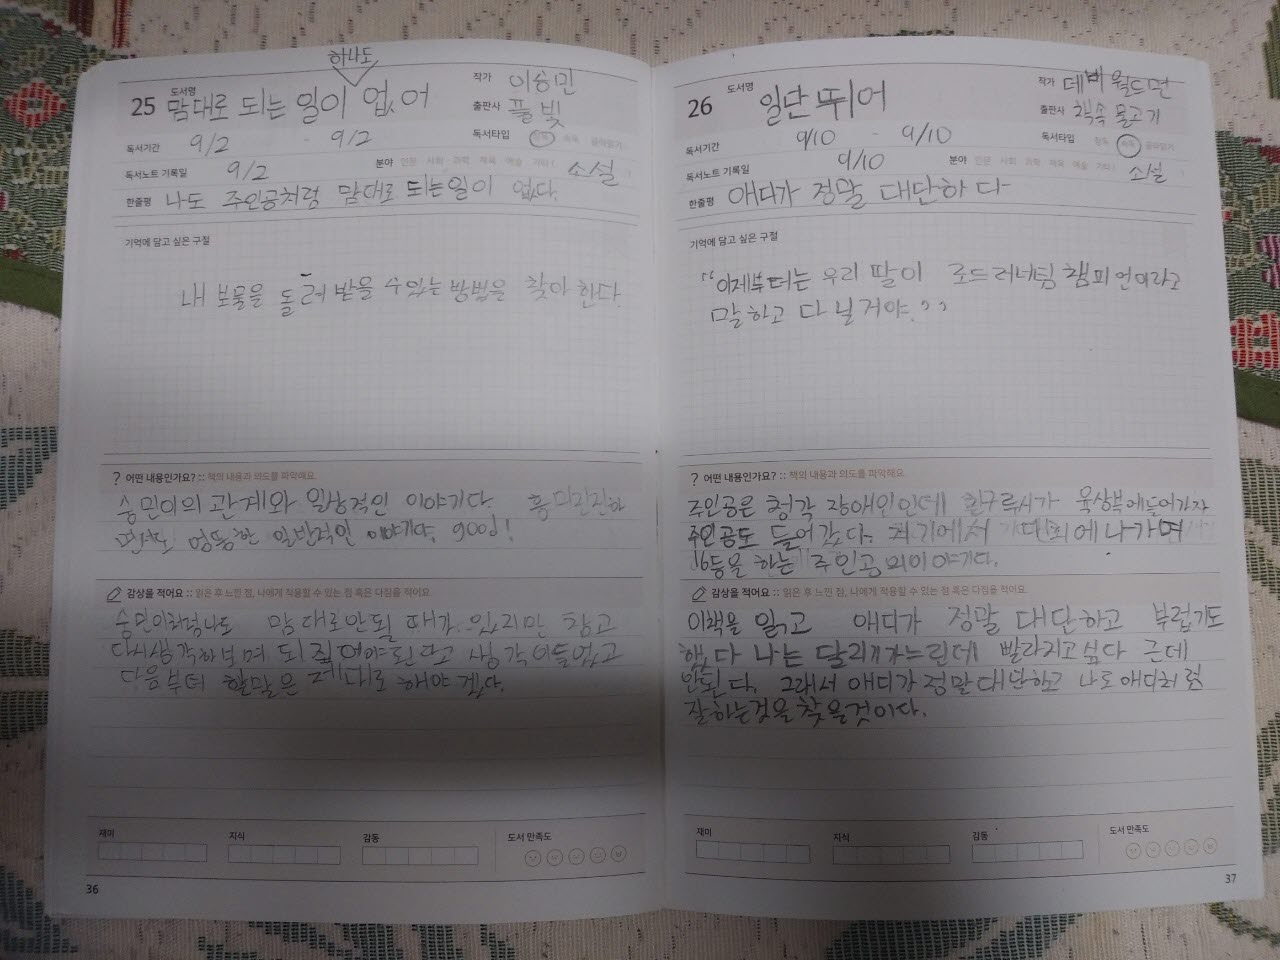 하나도
25 도서명 맘대로 되는 일이 없어
작가 이승민
출판사 풀빛
독서기간 9/2 - 9/2
독서타입 정독 속독 골라읽기
독서노트 기록일 9/2
분야 인문 사회 과학 체육 예술 기타 ( 소설
한줄평 나도 주인공처럼 맘대로 되는일이 없다.
기억에 담고 싶은 구절
내 보물을 돌려 받을 수 있는 방법을 찾아 한다.
? 어떤 내용인가요? :: 책의 내용과 의도를 파악해요.
숭민이의 관계와 일상적인 이야기다. 흥미진진하
면서도 엉뚱한 일반적인 이야기야. good!
감상을 적어요 :: 읽은 후 느낀 점, 나에게 적용할 수 있는 점 혹은 다짐을 적어요.
숭민이처럼나도 맘대로안될 때가 있지만 참고
다시생각하보며 되짚어야된다고 생각이들었고
다음부터 할말은 제대로 해야 겠다.
재미 지식 감동 도서 만족도
36
26 도서명 일단 뛰어
작가 데비 월드먼
출판사 책속 물고기
독서기간 9/10 - 9/10
독서타입 정독 속독 골라읽기
독서노트 기록일 9/10
분야 인문 사회 과학 체육 예술 기타 ( 소설
한줄평 애디가 정말 대단하다
기억에 담고 싶은 구절
"이제부터는 우리 딸이 로드러너팀 챔피언이라고
말하고 다닐거야."
? 어떤 내용인가요? :: 책의 내용과 의도를 파악해요.
주인공은 청각 장애인인데 친구루시가 육상부에들어가자
주인공도 들어갔다. 거기에서 대회에나가며
16등을 하는 주인공의이야기다.
감상을 적어요 :: 읽은 후 느낀 점, 나에게 적용할 수 있는 점 혹은 다짐을 적어요.
이책을 읽고 애디가 정말 대단하고 부럽기도
했다 나는 달리기가느린데 빨라지고싶다 근데
안된다. 그래서 애디가정말대단하고 나도애디처럼
잘하는것을찾을것이다.
재미 지식 감동 도서 만족도
37